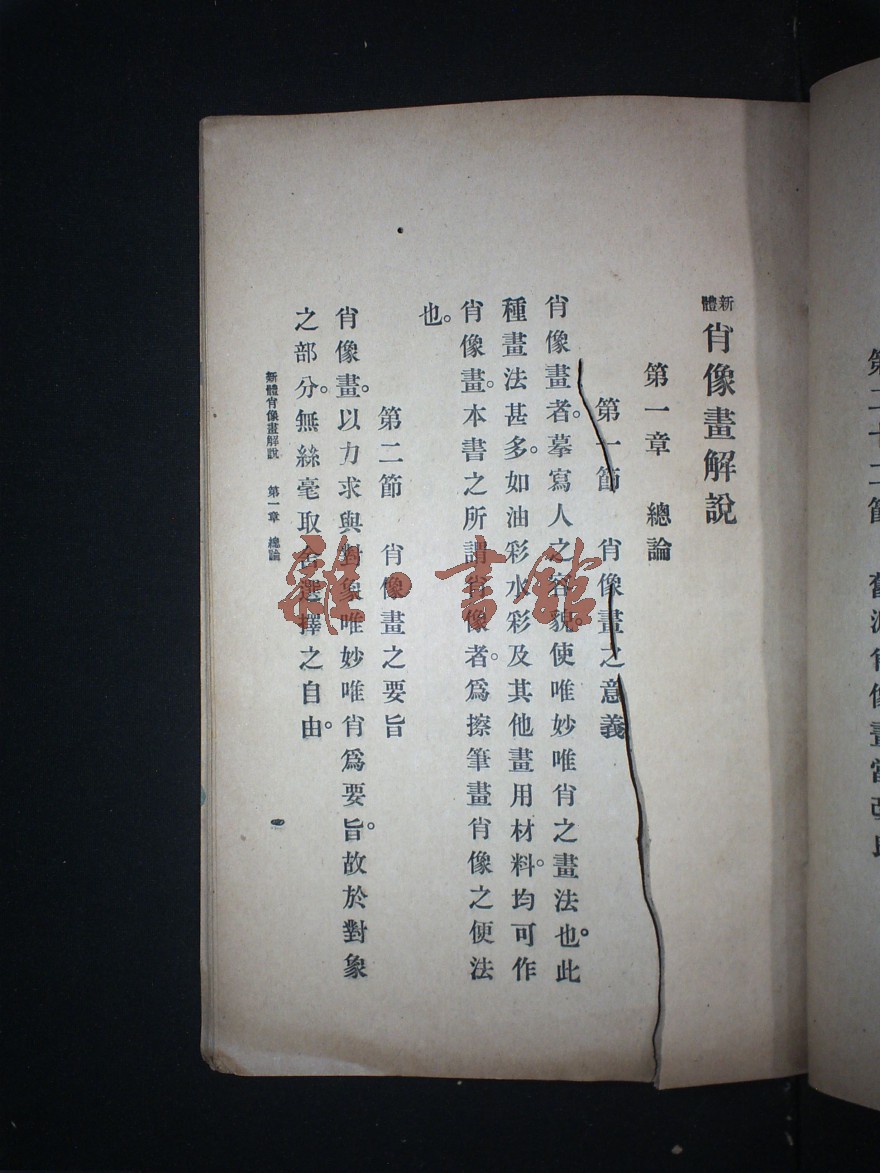 新體肖像畫解說
第一章　總論
第一節　肖像畫之意義
肖像畫者。摹寫人之容貌。使唯妙唯肖之畫法也。此
種畫法甚多。如油彩水彩及其他畫用材料。均可作
肖像畫。本書之所謂肖像者。爲擦筆畫肖像之便法
也。
第二節　肖像畫之要旨
肖像畫。以力求與對象唯妙唯肖爲要旨。故於對象
之部分。無絲毫取舍選擇之自由。
新體肖像畫解說　第一章　總論
一
雜·書館